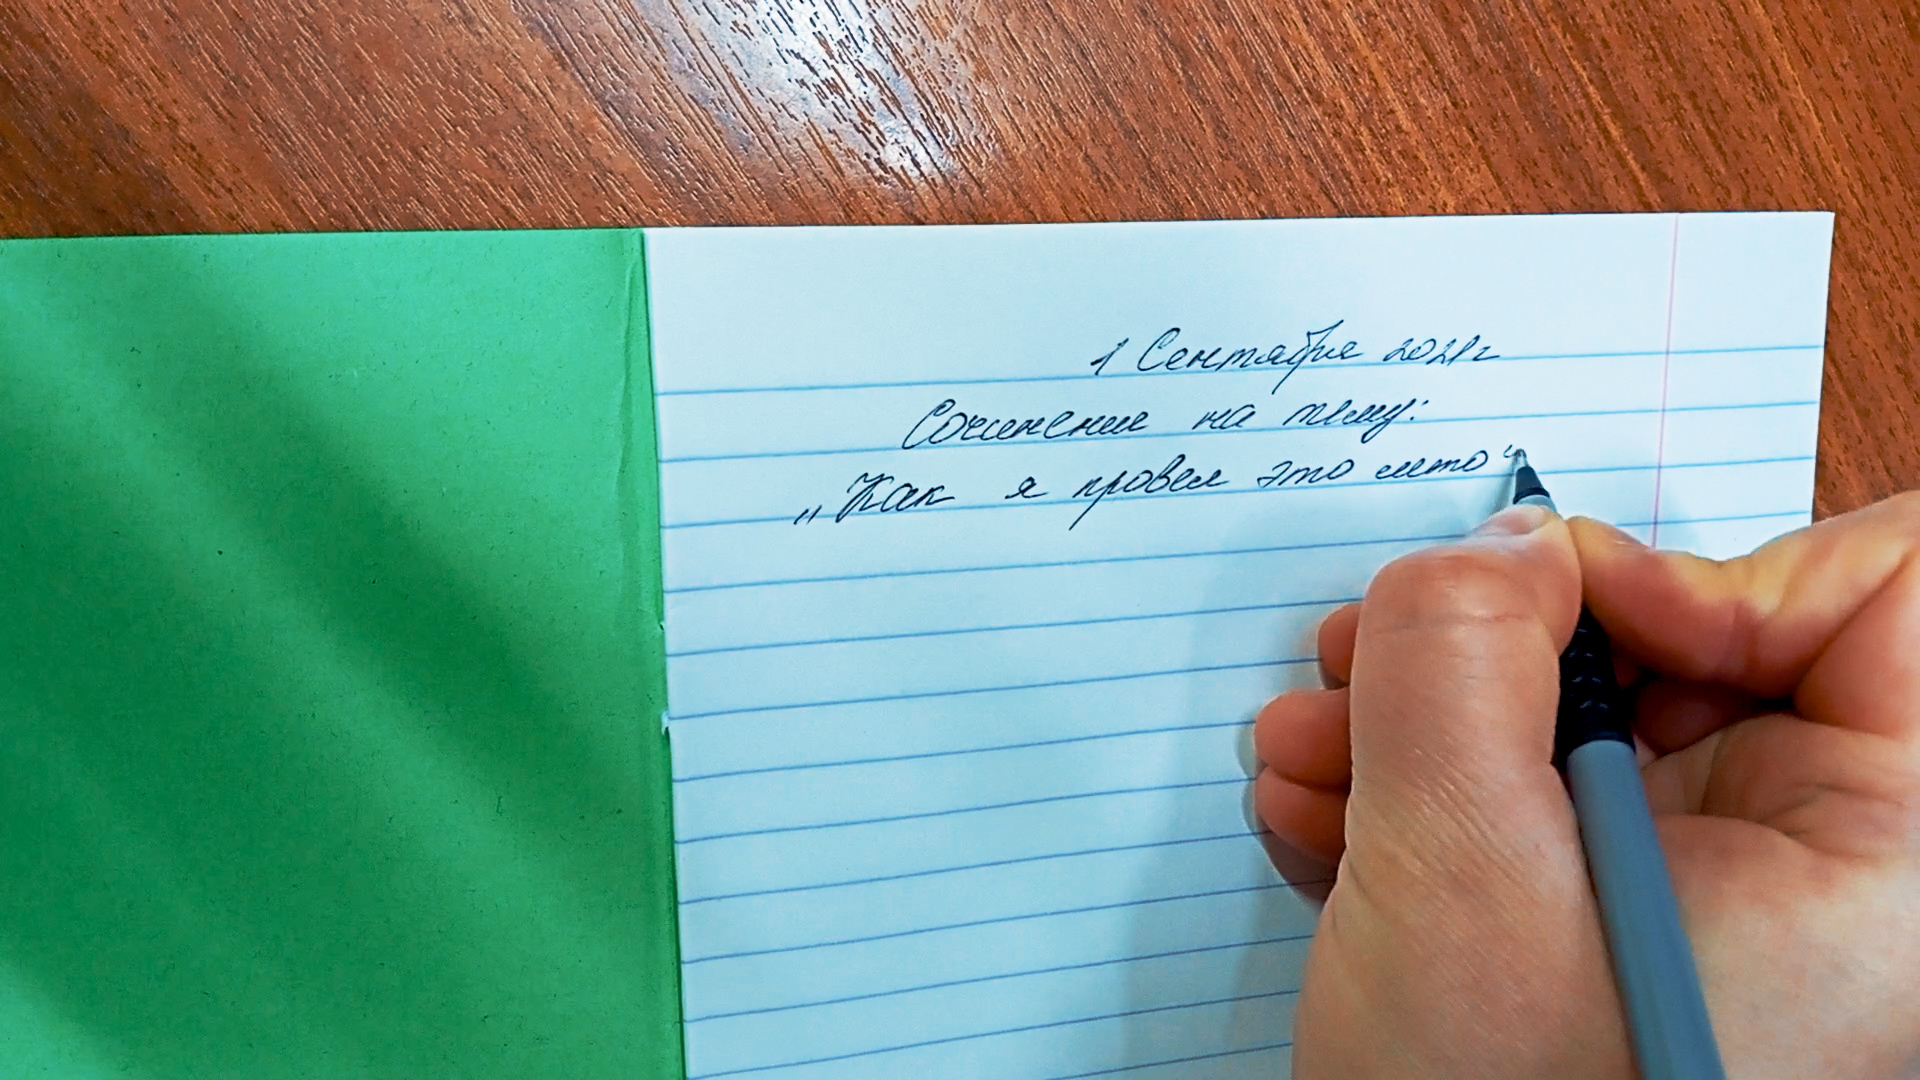 1 Сентября 2021г
Сочинение на тему:
„Как я провел это лето“